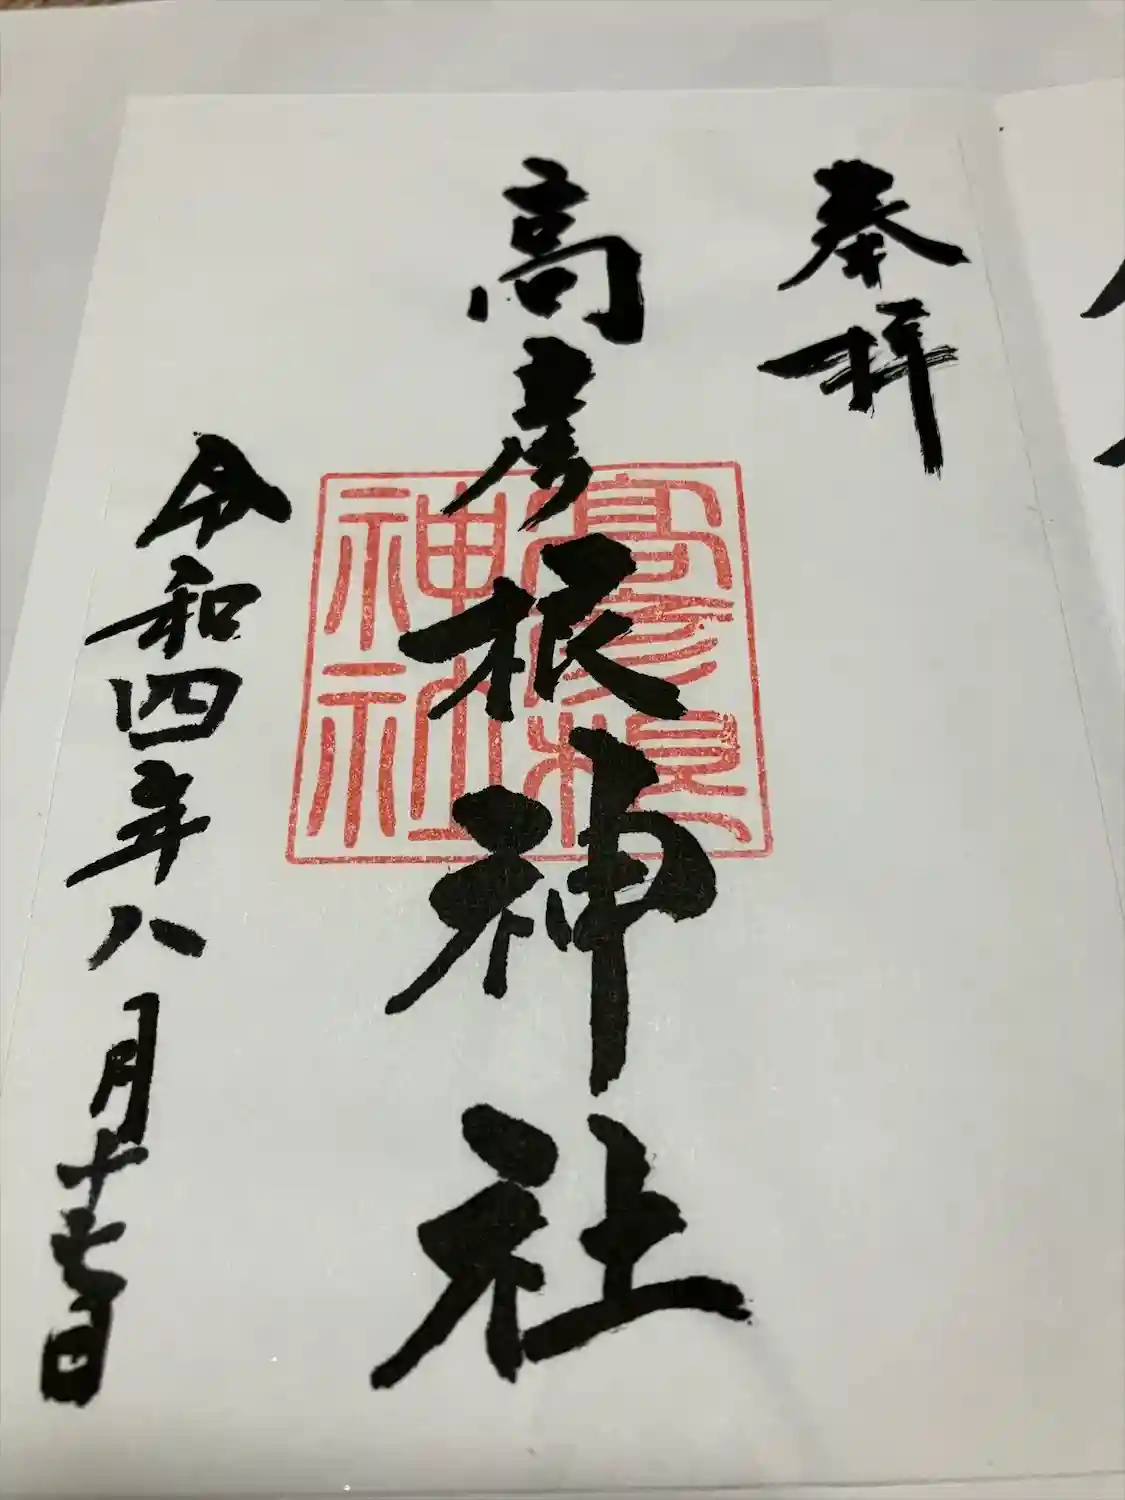 奉拝
高彦根神社
高彦根
神社
令和四年八月十七日